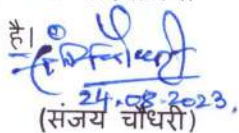 है।
24.08.2023.
(संजय चौधरी)